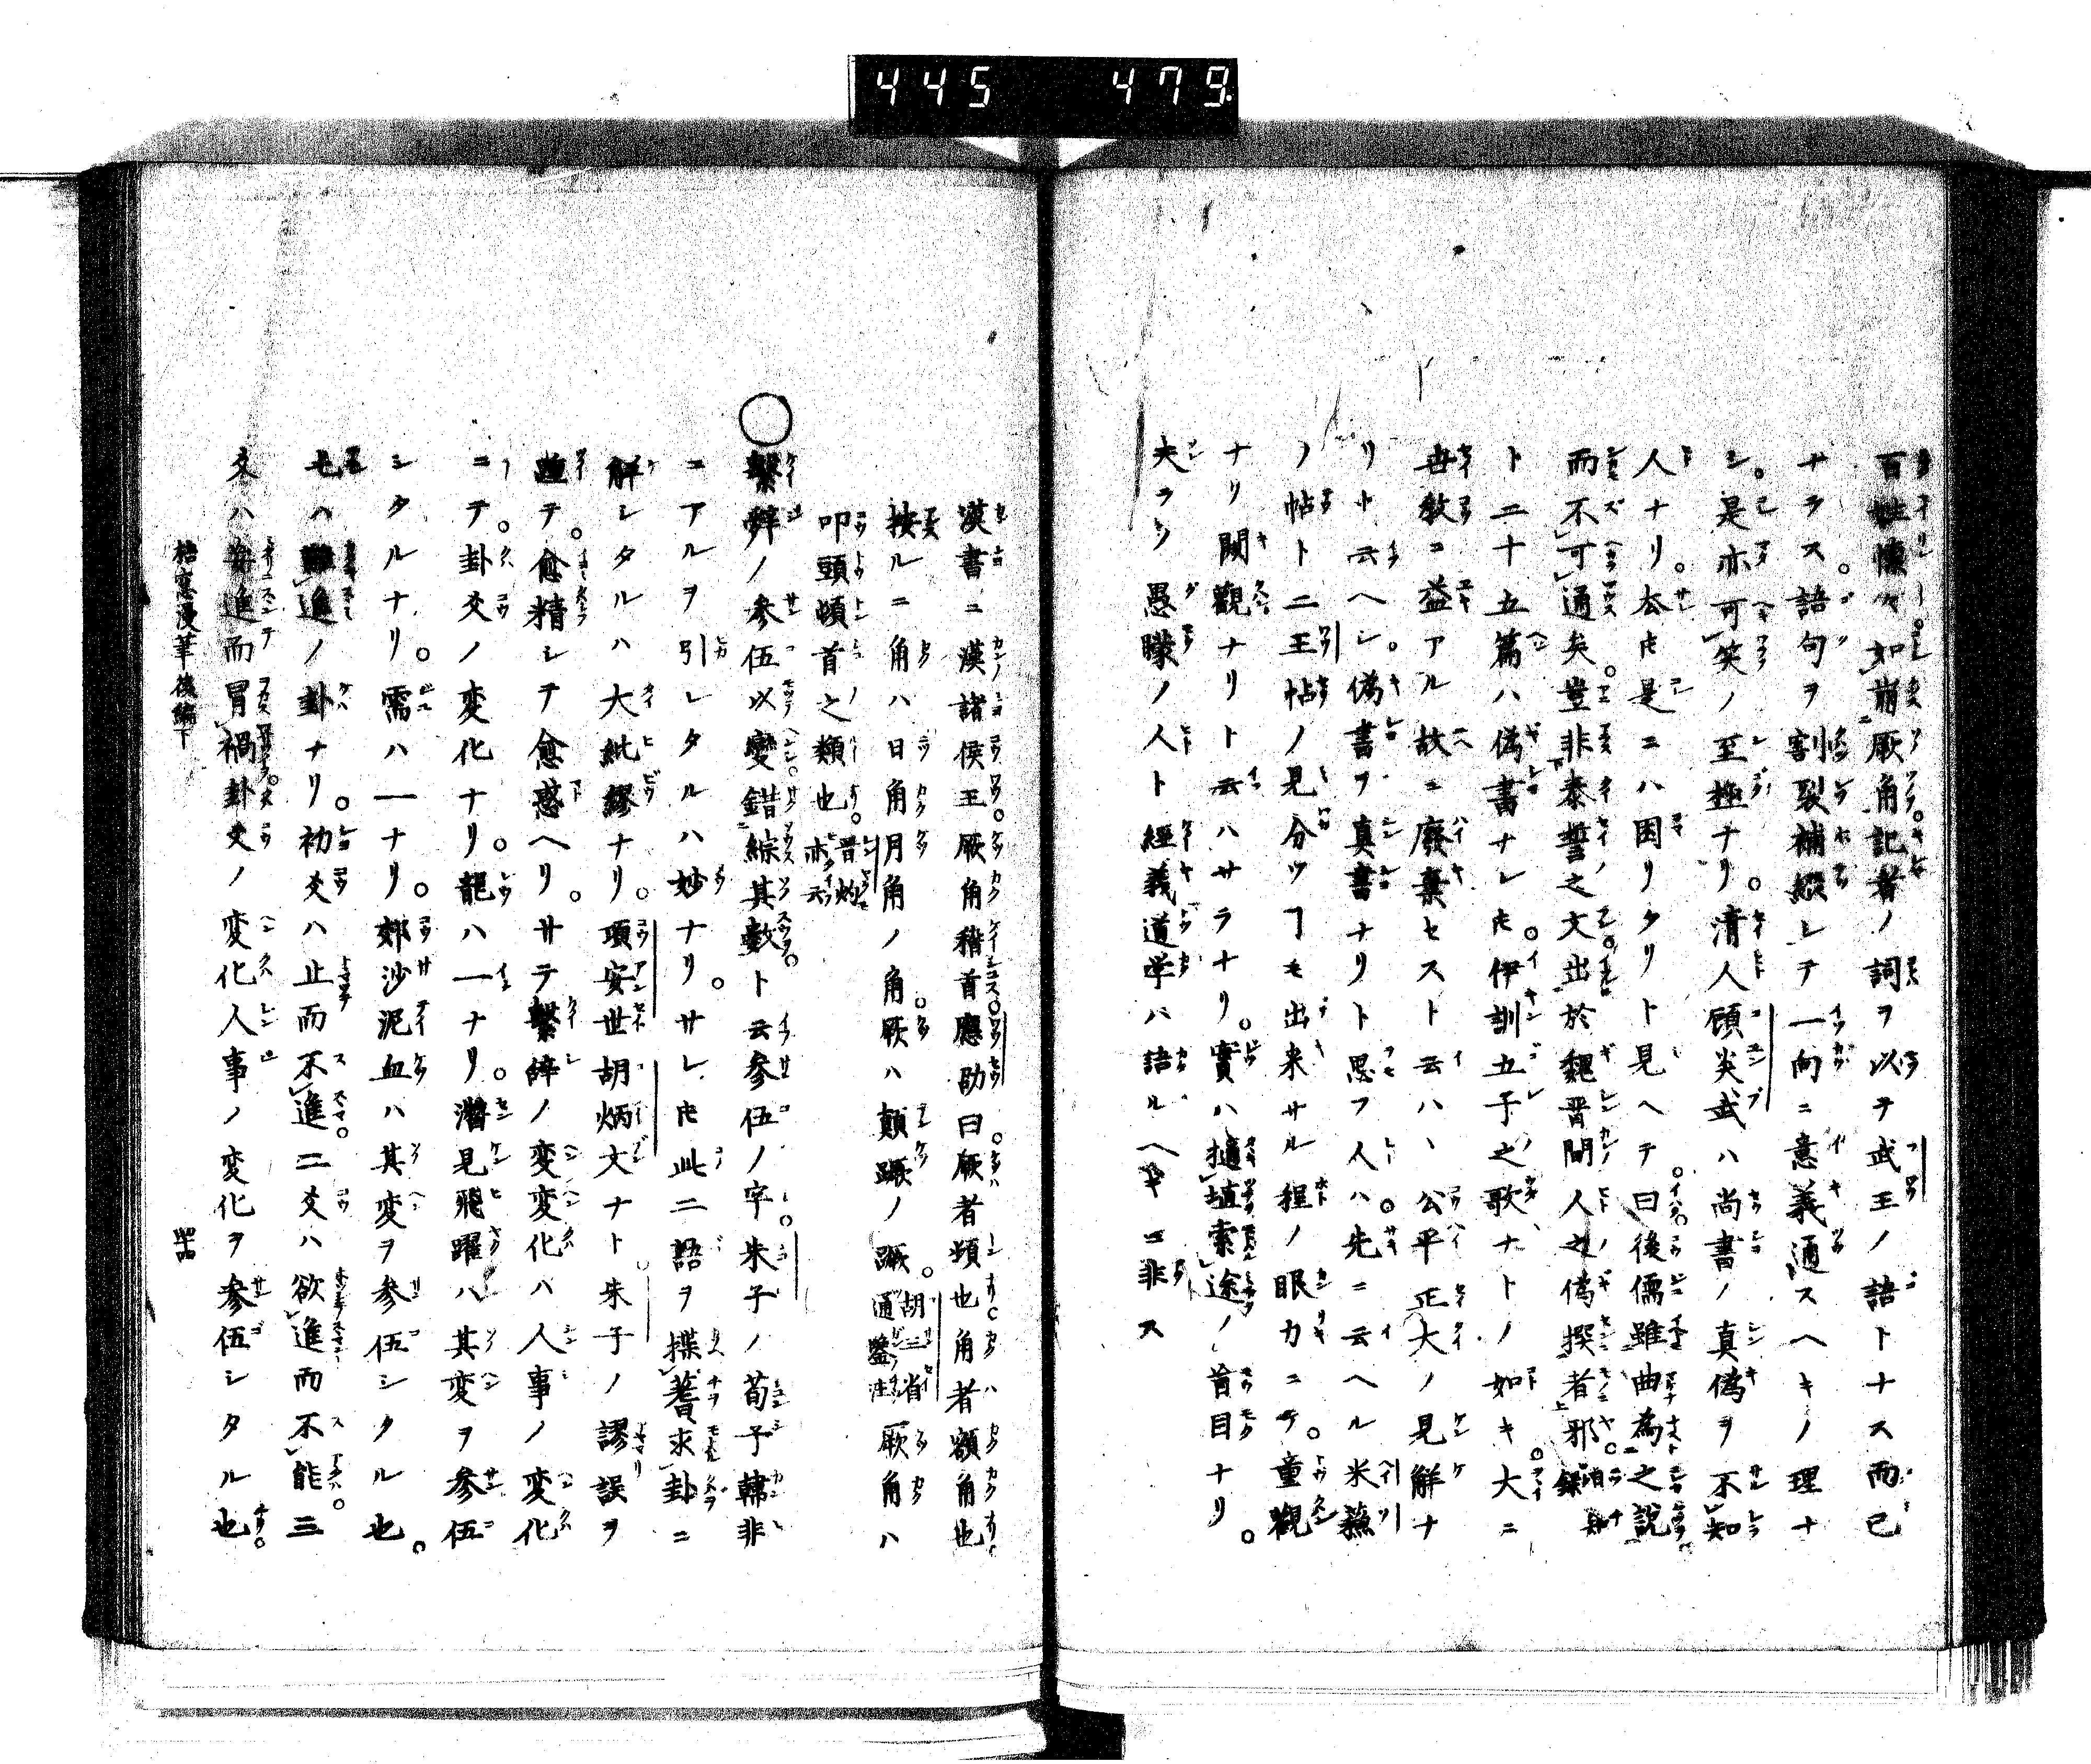 445 479
百姓懍々如崩厥角記者ノ詞ヲ以テ武王ノ語トナス而已
ナラス語句ヲ割裂補綴レテ一向ニ意義通スヘキノ理ナ
シ是亦可笑ノ至極ナリ清人顧炎武ハ尚書ノ真偽ヲ不知
人ナリ㕝𪜈是ニハ困リタリト見ヘテ曰後儒雖曲為之説
而不可通矣豈非泰誓之文出於魏晋間人之偽撰者邪
ト二十五篇ハ偽書ナレ𪜈伊訓五子之歌ナトノ如キ大ニ
世教ニ益アル故ニ廢棄セスト云ハヽ公平正大ノ見解ナ
リト云ヘシ偽書ヲ真書ナリト思フ人ハ先ニ云ヘル米蘓
ノ帖ト二王帖ノ見分ツヿモ出来サル程ノ眼力ニテ童觀
ナリ闚觀ナリト云ハサラナリ實ハ擿埴索途ノ盲目ナリ
夫ラノ愚矇ノ人ト經義道学ハ語ルヘキニ非ス
漢書ニ漢諸侯王厥角稽首應劭曰厥者頓也角者額角也
按ルニ角ハ日角月角ノ角厥ハ顛蹶ノ蹶胡三省通鑒注厥角ハ
叩頭頓首之類也晋灼亦云
○繫辞ノ参伍以變錯綜其數ト云参伍ノ字朱子ノ荀子韓非
ニアルヲ引レタルハ妙ナリサレ𪜈此二語ヲ揲蓍求卦ニ
解レタルハ大紕繆ナリ項安世胡炳文ナト朱子ノ謬誤ヲ
テ愈精シテ愈惑ヘリサテ繫辞ノ変変化ハ人事ノ変化
ニテ卦爻ノ変化ナリ龍ハ一ナリ潛見飛躍ハ其変ヲ参伍
シタルナリ需ハ一ナリ郊沙泥血ハ其変ヲ参伍シタル也
ハ難進ノ卦ナリ初爻ハ止而不進二爻ハ欲進而不能三
爻ハ進而冒禍卦爻ノ変化人事ノ変化ヲ参伍シタル也
梧窓漫筆後編下